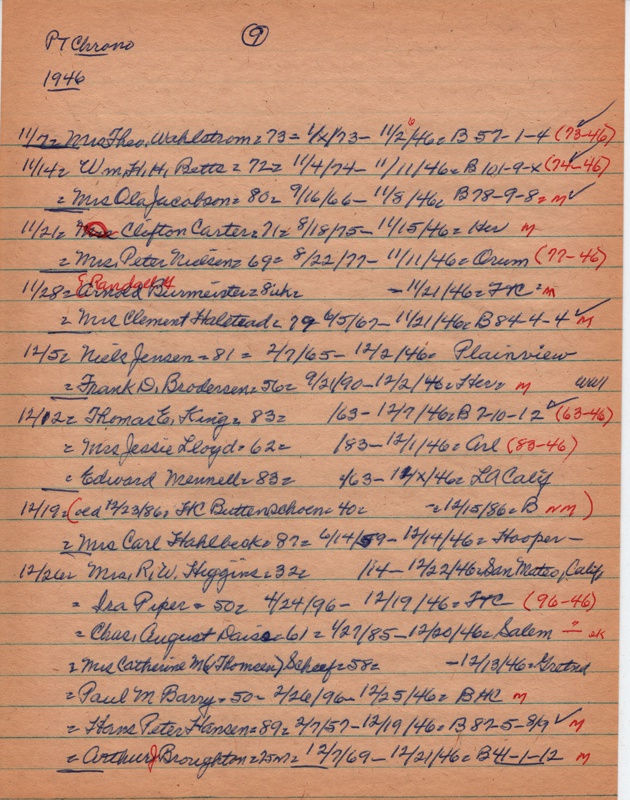 PT Chrono 9
1946
11/7= Mrs Theo. Wahlstrom = 73 = 1/x/73 - 11/2/46= B 57-1-4 (73-46) ✓
11/14= Wm. H. H. Betts = 72 = 11/4/74 - 11/11/46= B 101-9-x (74-46) ✓
= Mrs Ola Jacobson = 80 = 9/16/66 - 11/8/46= B78-9-8 = m ✓
11/21= Clifton Carter = 71 = 8/18/75 - 11/15/46 = Her m
= Mrs. Peter Nielsen = 69 = 8/22/77 - 11/11/46 = Orum (77-46)
11/28= Arnold Burmeister = - 11/21/46 = FtC = m
= Mrs Clement Halstead = 79 6/5/67 - 11/21/46= B84-4-4 ✓ m
12/5= Niels Jensen = 81 = 2/7/65 - 12/2/46= Plainview
= Frank D. Brodersen = 56 = 9/21/90 - 12/2/46= Her = m WWI
12/12= Thomas E. King = 83 = /63 - 12/7/46= B 2-10-12 ✓ (63-46)
= Mrs Jessie Lloyd = 62 = /83 - 12/1/46 = Arl (83-46)
= Edward Mennell = 83 = /63 - 12/x/46 = LA Calif
12/19= (ocd 12/23/86= HC Buttenschoen = 40 = = 12/15/86 = B nm)
= Mrs Carl Hahlbeck = 87 = 6/14/59 - 12/14/46 = Hooper -
12/26= Mrs. R. W. Higgins = 32 = /14 - 12/22/46= San Mateo, Calif
= Ira Piper = 50 = 4/24/96 - 12/19/46 = FtC (96-46)
= Chas. August = 61 = 4/27/85 - 12/20/46 = Salem
= Mrs Catherine M (Thomsen) Scheef = 58 = - 12/13/46 = Gretna
= Paul M Barry = 50 - 2/26/96 - 12/25/46 = BHC m
= Hans Peter Hansen = 89 = 2/7/57 - 12/19/46 = B 82-5-8/9 ✓ m
= Arthur J Broughton = 12/7/69 - 12/21/46 = B41-1-12 m